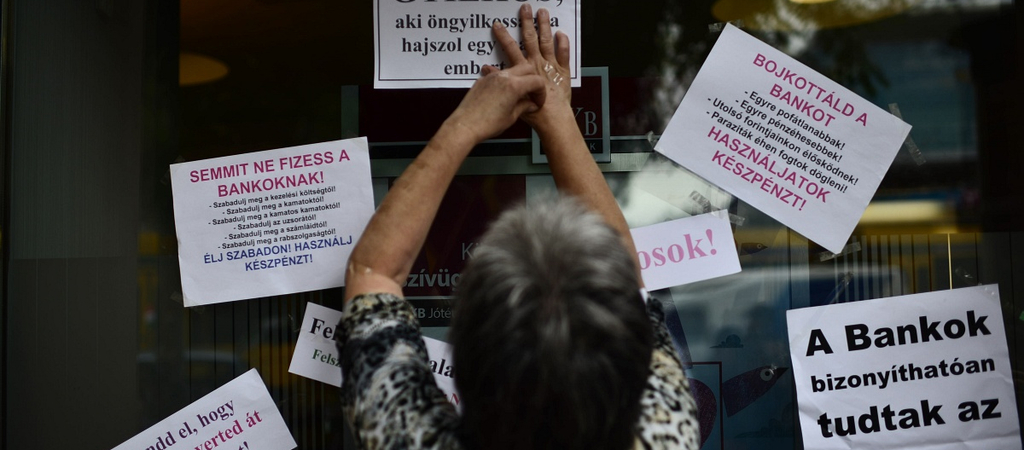 aki öngyilkosságba
hajszol egy
embert
SEMMIT NE FIZESS A
BANKOKNAK!
- Szabadulj meg a kezelési költségtől!
- Szabadulj meg a kamatoktól!
- Szabadulj meg a kamatos kamatoktól!
- Szabadulj az uzsorától!
- Szabadulj meg a számláidtól!
- Szabadulj meg a rabszolgaságtól!
ÉLJ SZABADON! HASZNÁLJ
KÉSZPÉNZT!
BOJKOTTÁLD A
BANKOT
- Egyre pofátlanabbak!
- Egyre pénzéhesebbek!
- Utolsó forintjainkon élősködnek!
- Paraziták éhen fogtok dögleni!
HASZNÁLJATOK
KÉSZPÉNZT!
osok!
A Bankok
bizonyíthatóan
tudtak az
szívüg
KB Jóté
Fel
Felsz
ala
add el, hogy
verted át